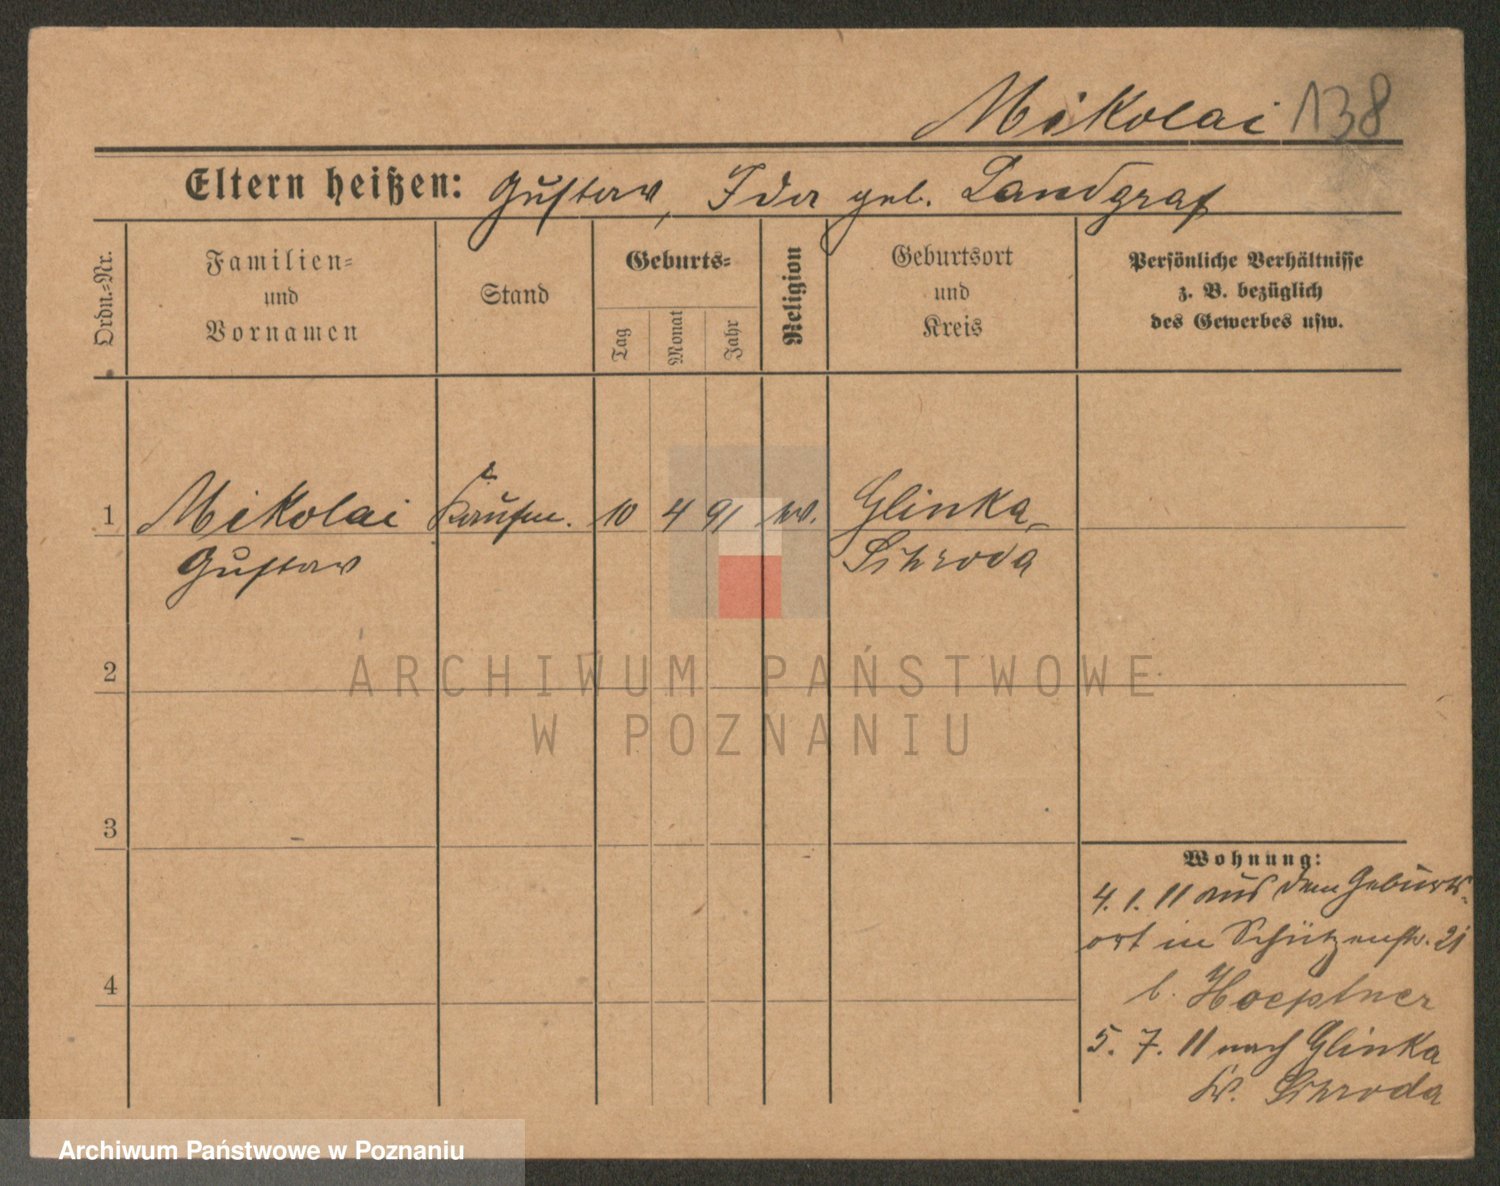 Mikolai 138
Eltern heißen: Gustav, Ida geb. Landgraf
Ordn.-Nr.
Familien-
und
Vornamen
Stand
Geburts-
Tag
Monat
Jahr
Religion
Geburtsort
und
Kreis
Persönliche Verhältnisse
z. B. bezüglich
des Gewerbes usw.
1 Mikolai Kaufm. 10 4 91 Glinka
Gustav Schroda
2
ARCHIWUM PAŃSTWOWE
W POZNANIU
3
Wohnung:
4. 1. 11 aus dem Geburts-
ort in Schützenstr. 21
b. Hoeptner
4
5. 7. 11 nach Glinka
Kr. Schroda
Archiwum Państwowe w Poznaniu